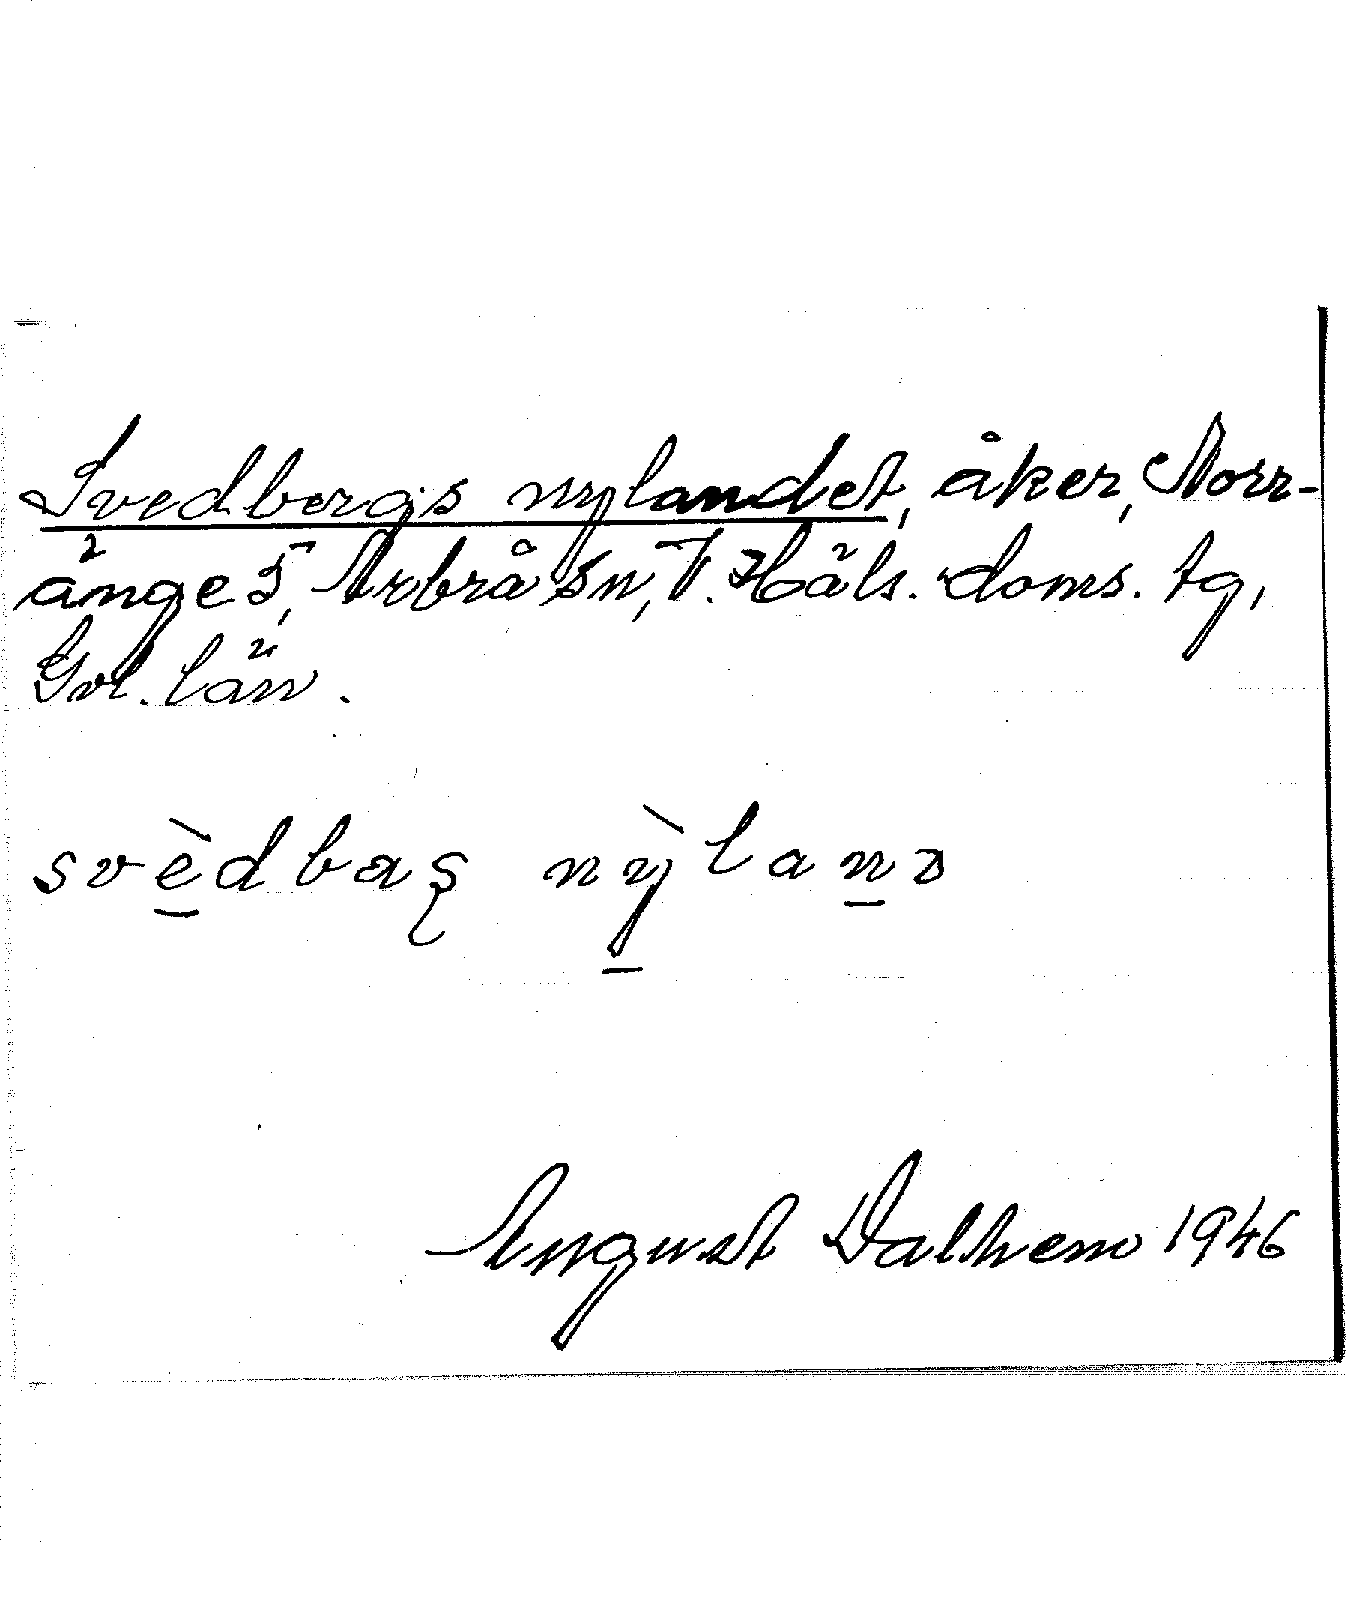 Svedbergs nylandet, åker, Norr-
änge 5, Arbrå sn, V. Häls. doms. tg,
Gvl. län.
svèdbaş nỳlanə
August Dalhem 1946